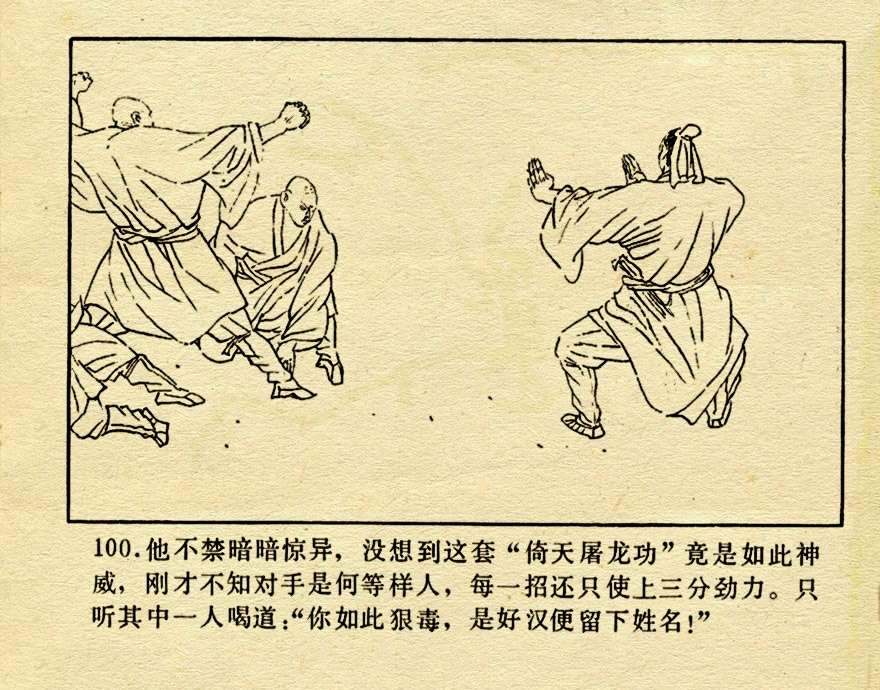 100.他不禁暗暗惊异，没想到这套“倚天屠龙功”竟是如此神
威，刚才不知对手是何等样人，每一招还只使上三分劲力。只
听其中一人喝道：“你如此狠毒，是好汉便留下姓名！”